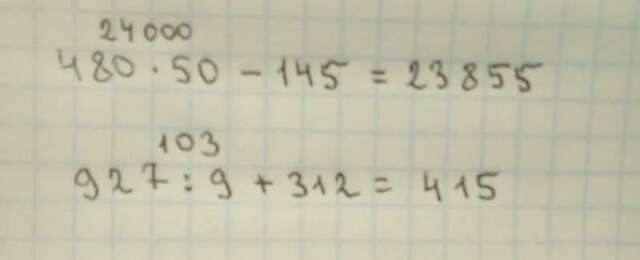 24000
480 · 50 - 145 = 23855
103
927 : 9 + 312 = 415